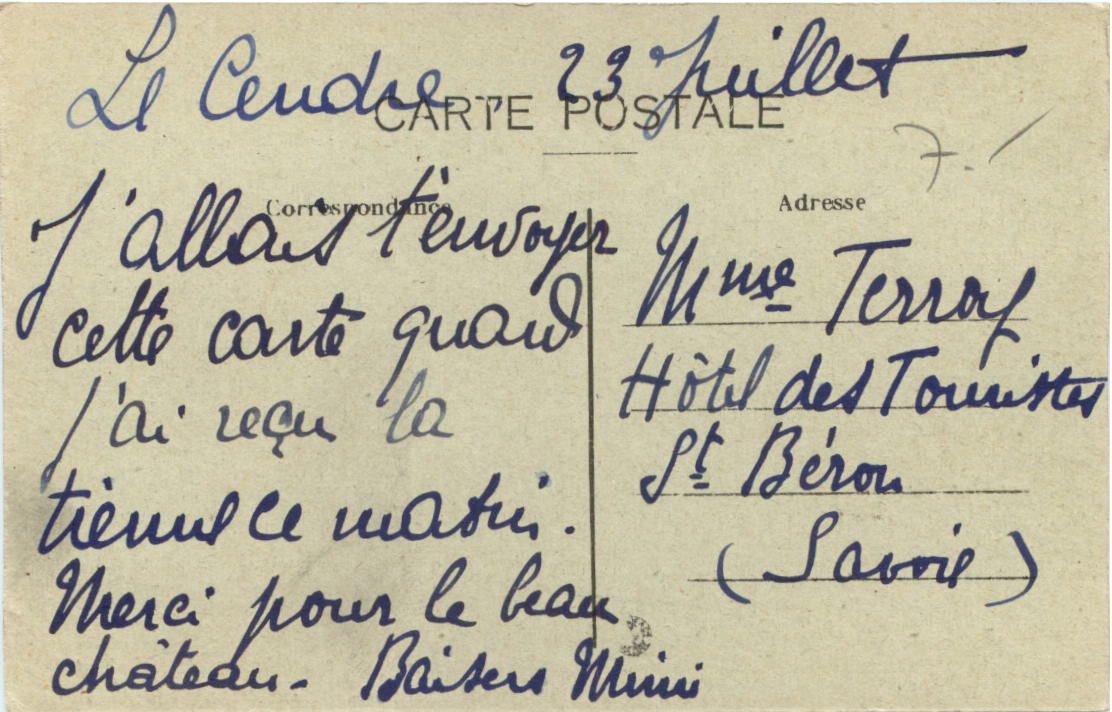 Le Cendre. 23 Juillet
CARTE POSTALE
7.
Correspondance
J'allais t'envoyer
cette carte quand
j'ai reçu la
tienne ce matin.
Merci pour le beau
château. Baisers Mimi
Adresse
Mme Terroy
Hôtel des Touristes
St Béron
(Savoie)